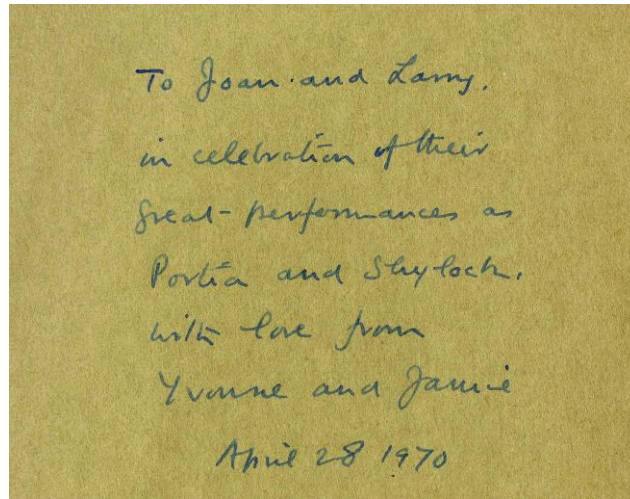 To Joan and Larry,
in celebration of their
great performances as
Portia and Shylock,
with love from
Yvonne and Jamie
April 28 1970